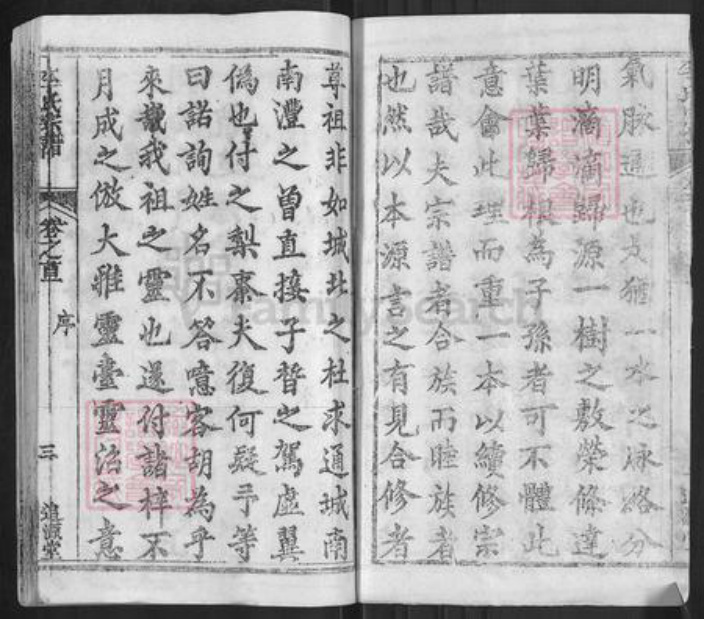 氣脉通也是猶一水之泳絡分
明滴滴歸源一樹之敷榮條達
葉葉歸根為子孫者可不體此
意會此理而重一本以續修宗
譜哉夫宗譜者合族而睦族者
也然以本源言之有見合修者
尊祖非如城北之杜求通城南
南灃之曾直接子晳之駕虛翼
偽也付之梨棗夫復何疑予等
曰諾詢姓名不答噫客胡為乎
來哉我祖之靈也遂付諸梓不
月成之倣大雅靈臺靈治之意
李氏宗譜
卷之首
序
三
追淑堂
FamilySearch